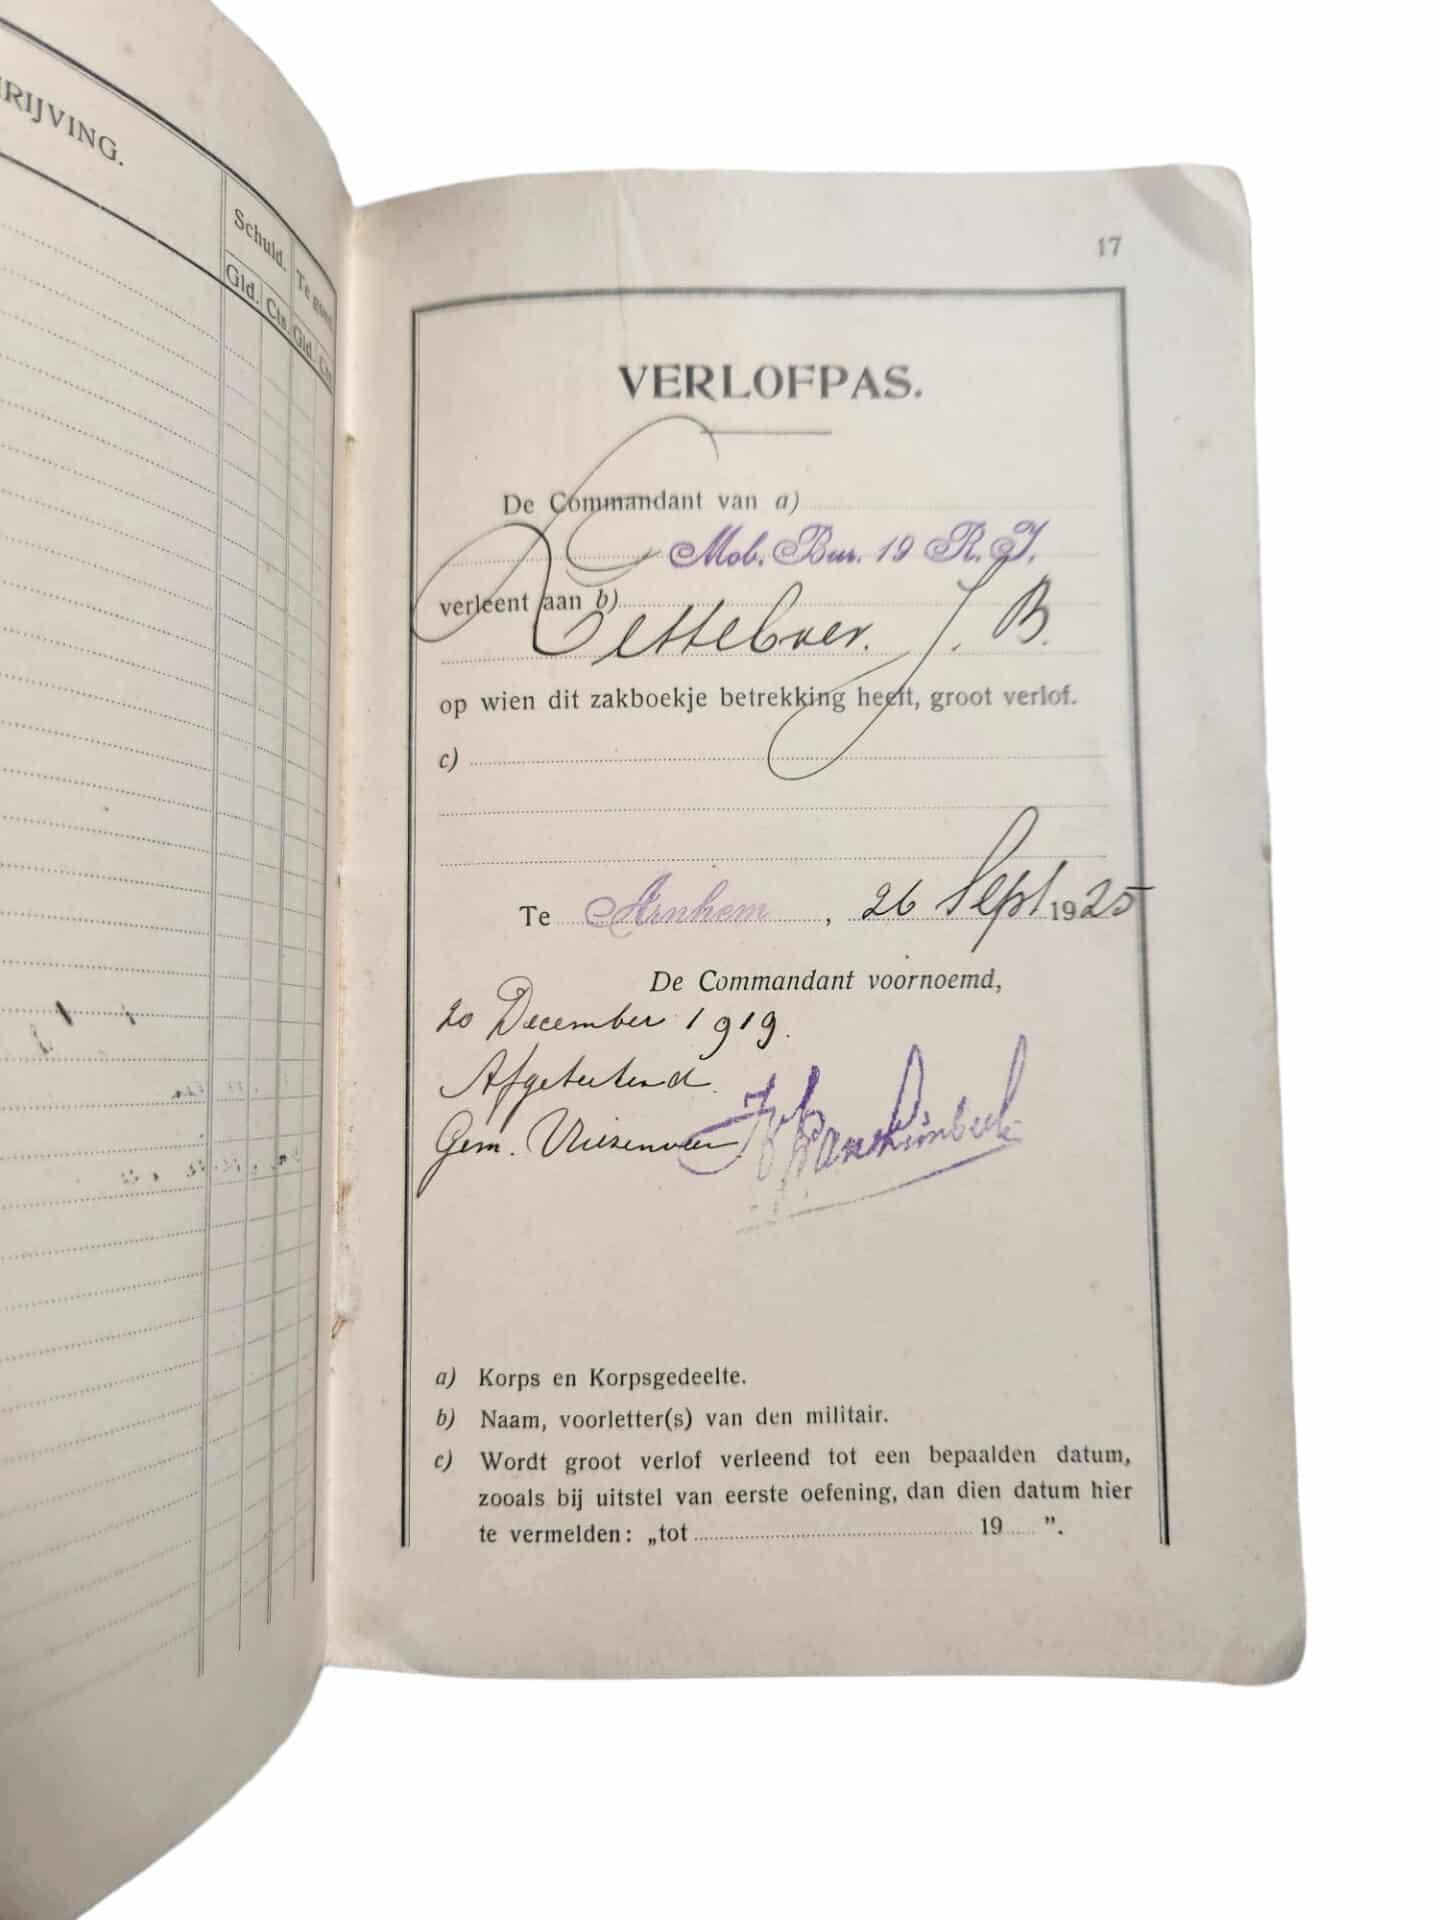 RIJVING.
Schuld.
Te goed
Gld.
Cts.
Gld.
Cts
17
VERLOFPAS.
De Commandant van a)
Mob. Bur. 19 R. I.
verleent aan b)
J. B.
op wien dit zakboekje betrekking heeft, groot verlof.
c)
Te Arnhem, 26 Sept 1925
De Commandant voornoemd,
20 December 1919.
Afgeteekend
Gem.
a) Korps en Korpsgedeelte.
b) Naam, voorletter(s) van den militair.
c) Wordt groot verlof verleend tot een bepaalden datum,
zooals bij uitstel van eerste oefening, dan dien datum hier
te vermelden: „tot 19 ”.